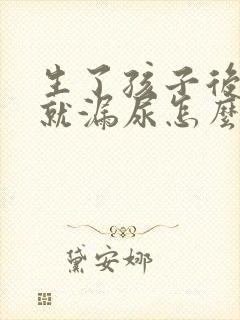 生了孩子後
就漏尿怎麼
黛安娜